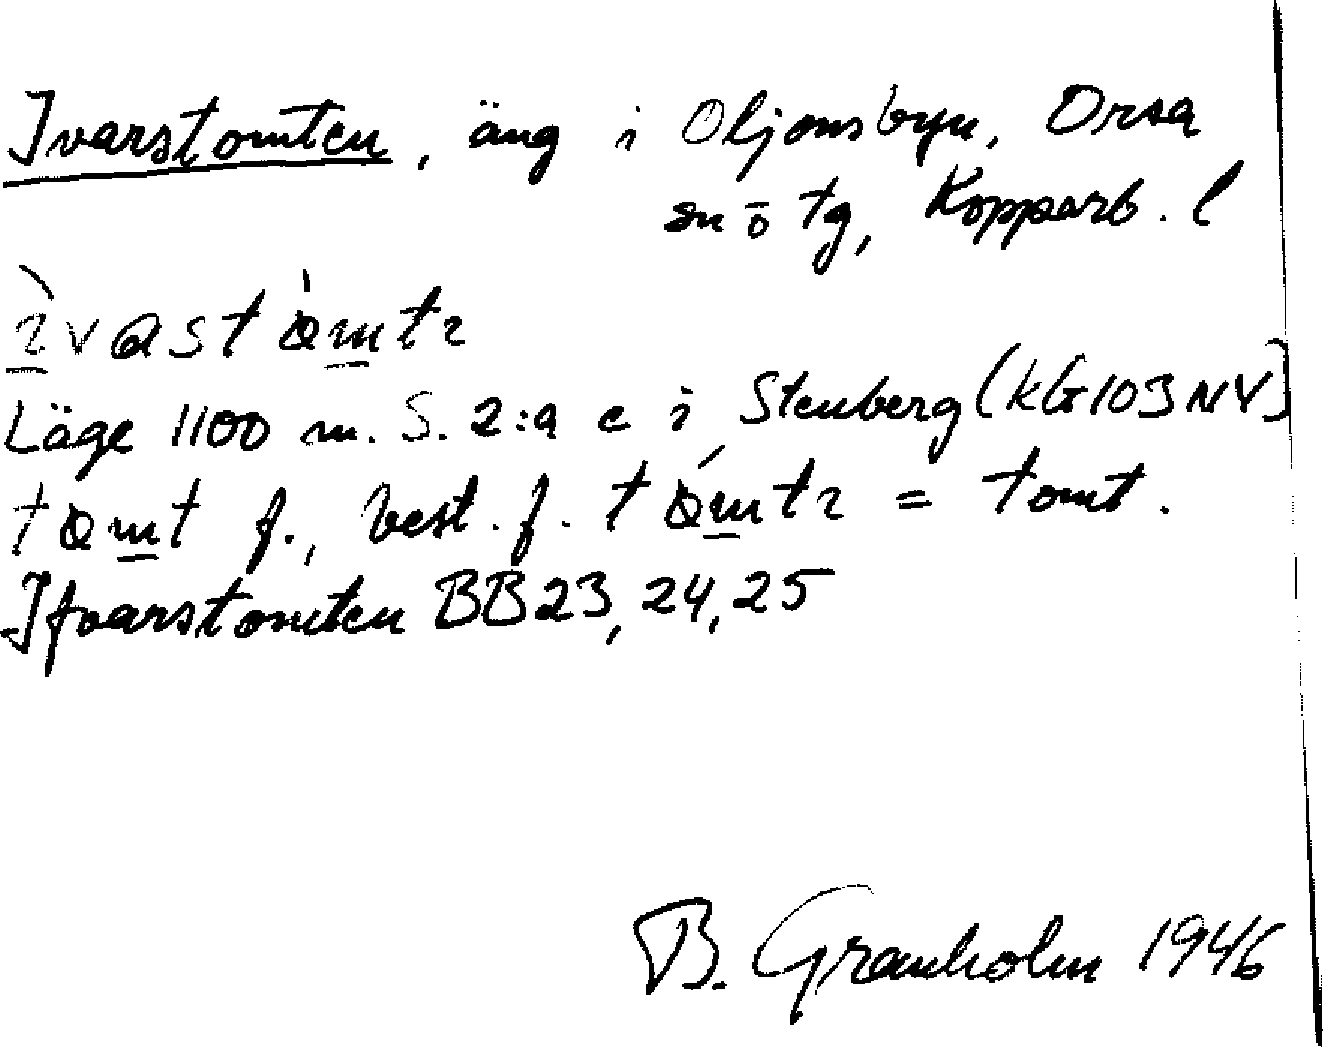 Ivarstomten, äng i Oljonsbyn, Orsa
sn ō tg, Kopparb. l
Läge 1100 m. S. 2:a e i Stenberg (KG103NV)
f., best. f. = tomt.
Ifvarstomten BB23, 24, 25
B. Granholm 1946